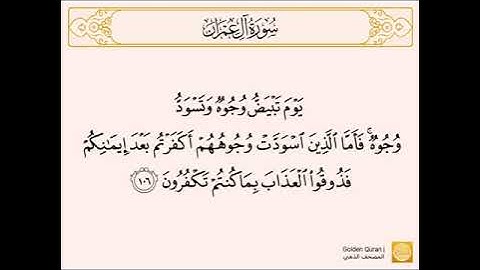 سُورَةُ آلِ عِمْرَان
يَوْمَ تَبْيَضُّ وُجُوهٌ وَتَسْوَدُّ
وُجُوهٌ ۚ فَأَمَّا ٱلَّذِينَ ٱسْوَدَّتْ وُجُوهُهُمْ أَكَفَرْتُم بَعْدَ إِيمَـٰنِكُمْ
فَذُوقُوا۟ ٱلْعَذَابَ بِمَا كُنتُمْ تَكْفُرُونَ ١٠٦
Golden Quran |
المصحف الذهبي